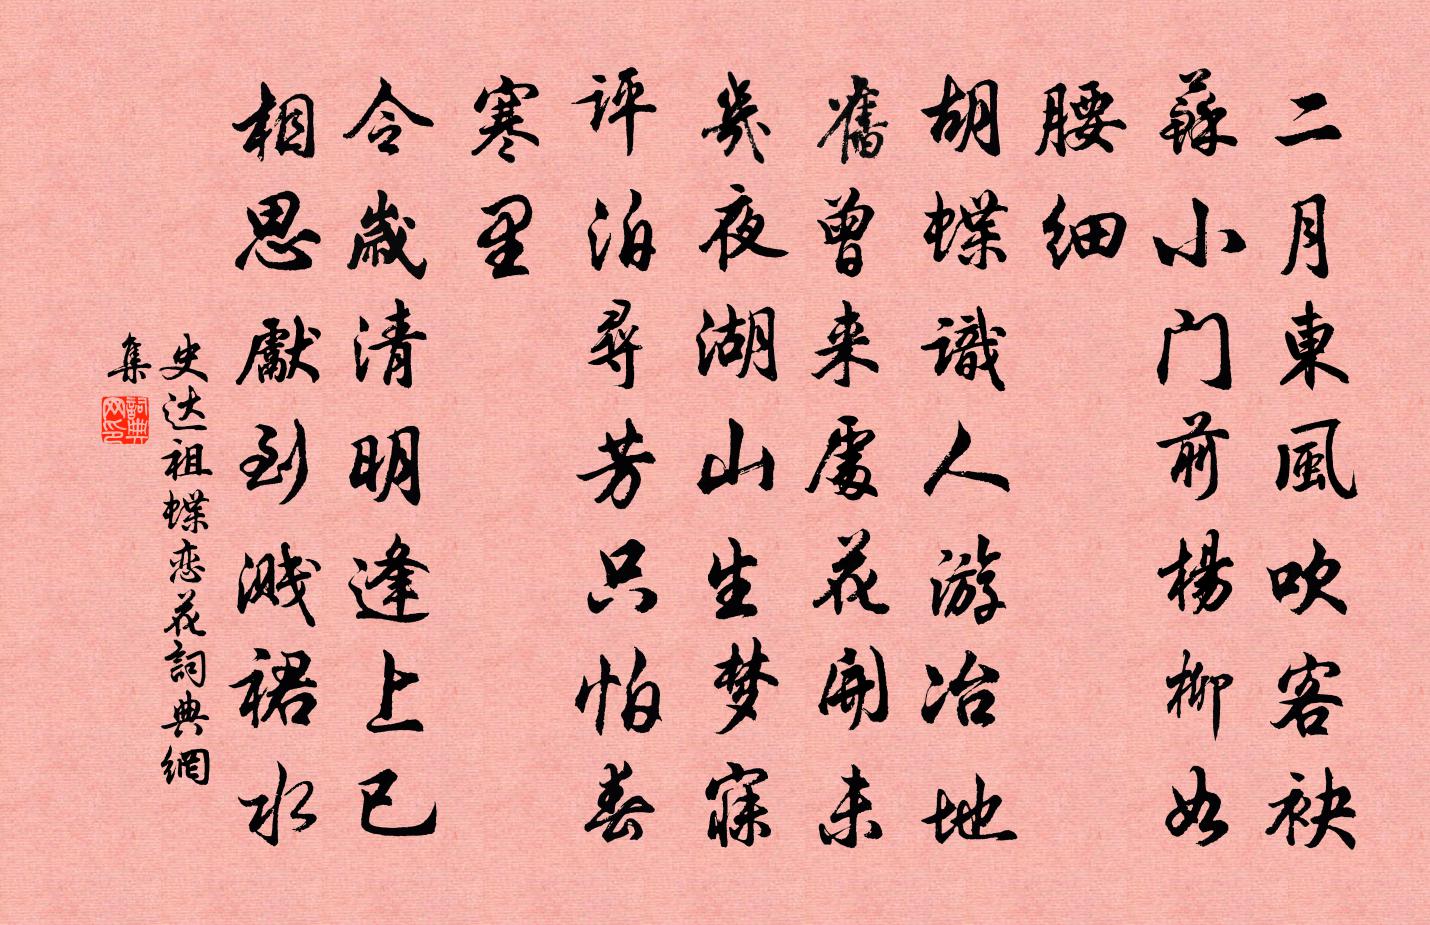 二月東風吹客袂
蘇小门前楊柳如
腰细
胡蝶識人游冶地
舊曾来處花開未
幾夜湖山生梦寐
評泊尋芳只怕春
寒里
今歲清明逢上巳
相思先到溅裙水
史达祖蝶恋花詞典網
集
詞典网印